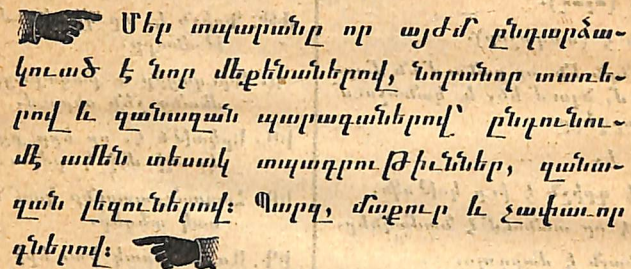 Մեր տպարանը որ այժմ ընդարձա-
կուած է նոր մեքենաներով, նորանոր տառե-
րով և զանազան պարագաներով՝ ընդունու-
մէ ամեն տեսակ տպագրութիւններ, զանա-
զան լեզուներով։ Պարզ, մաքուր և չափաւոր
գներով։